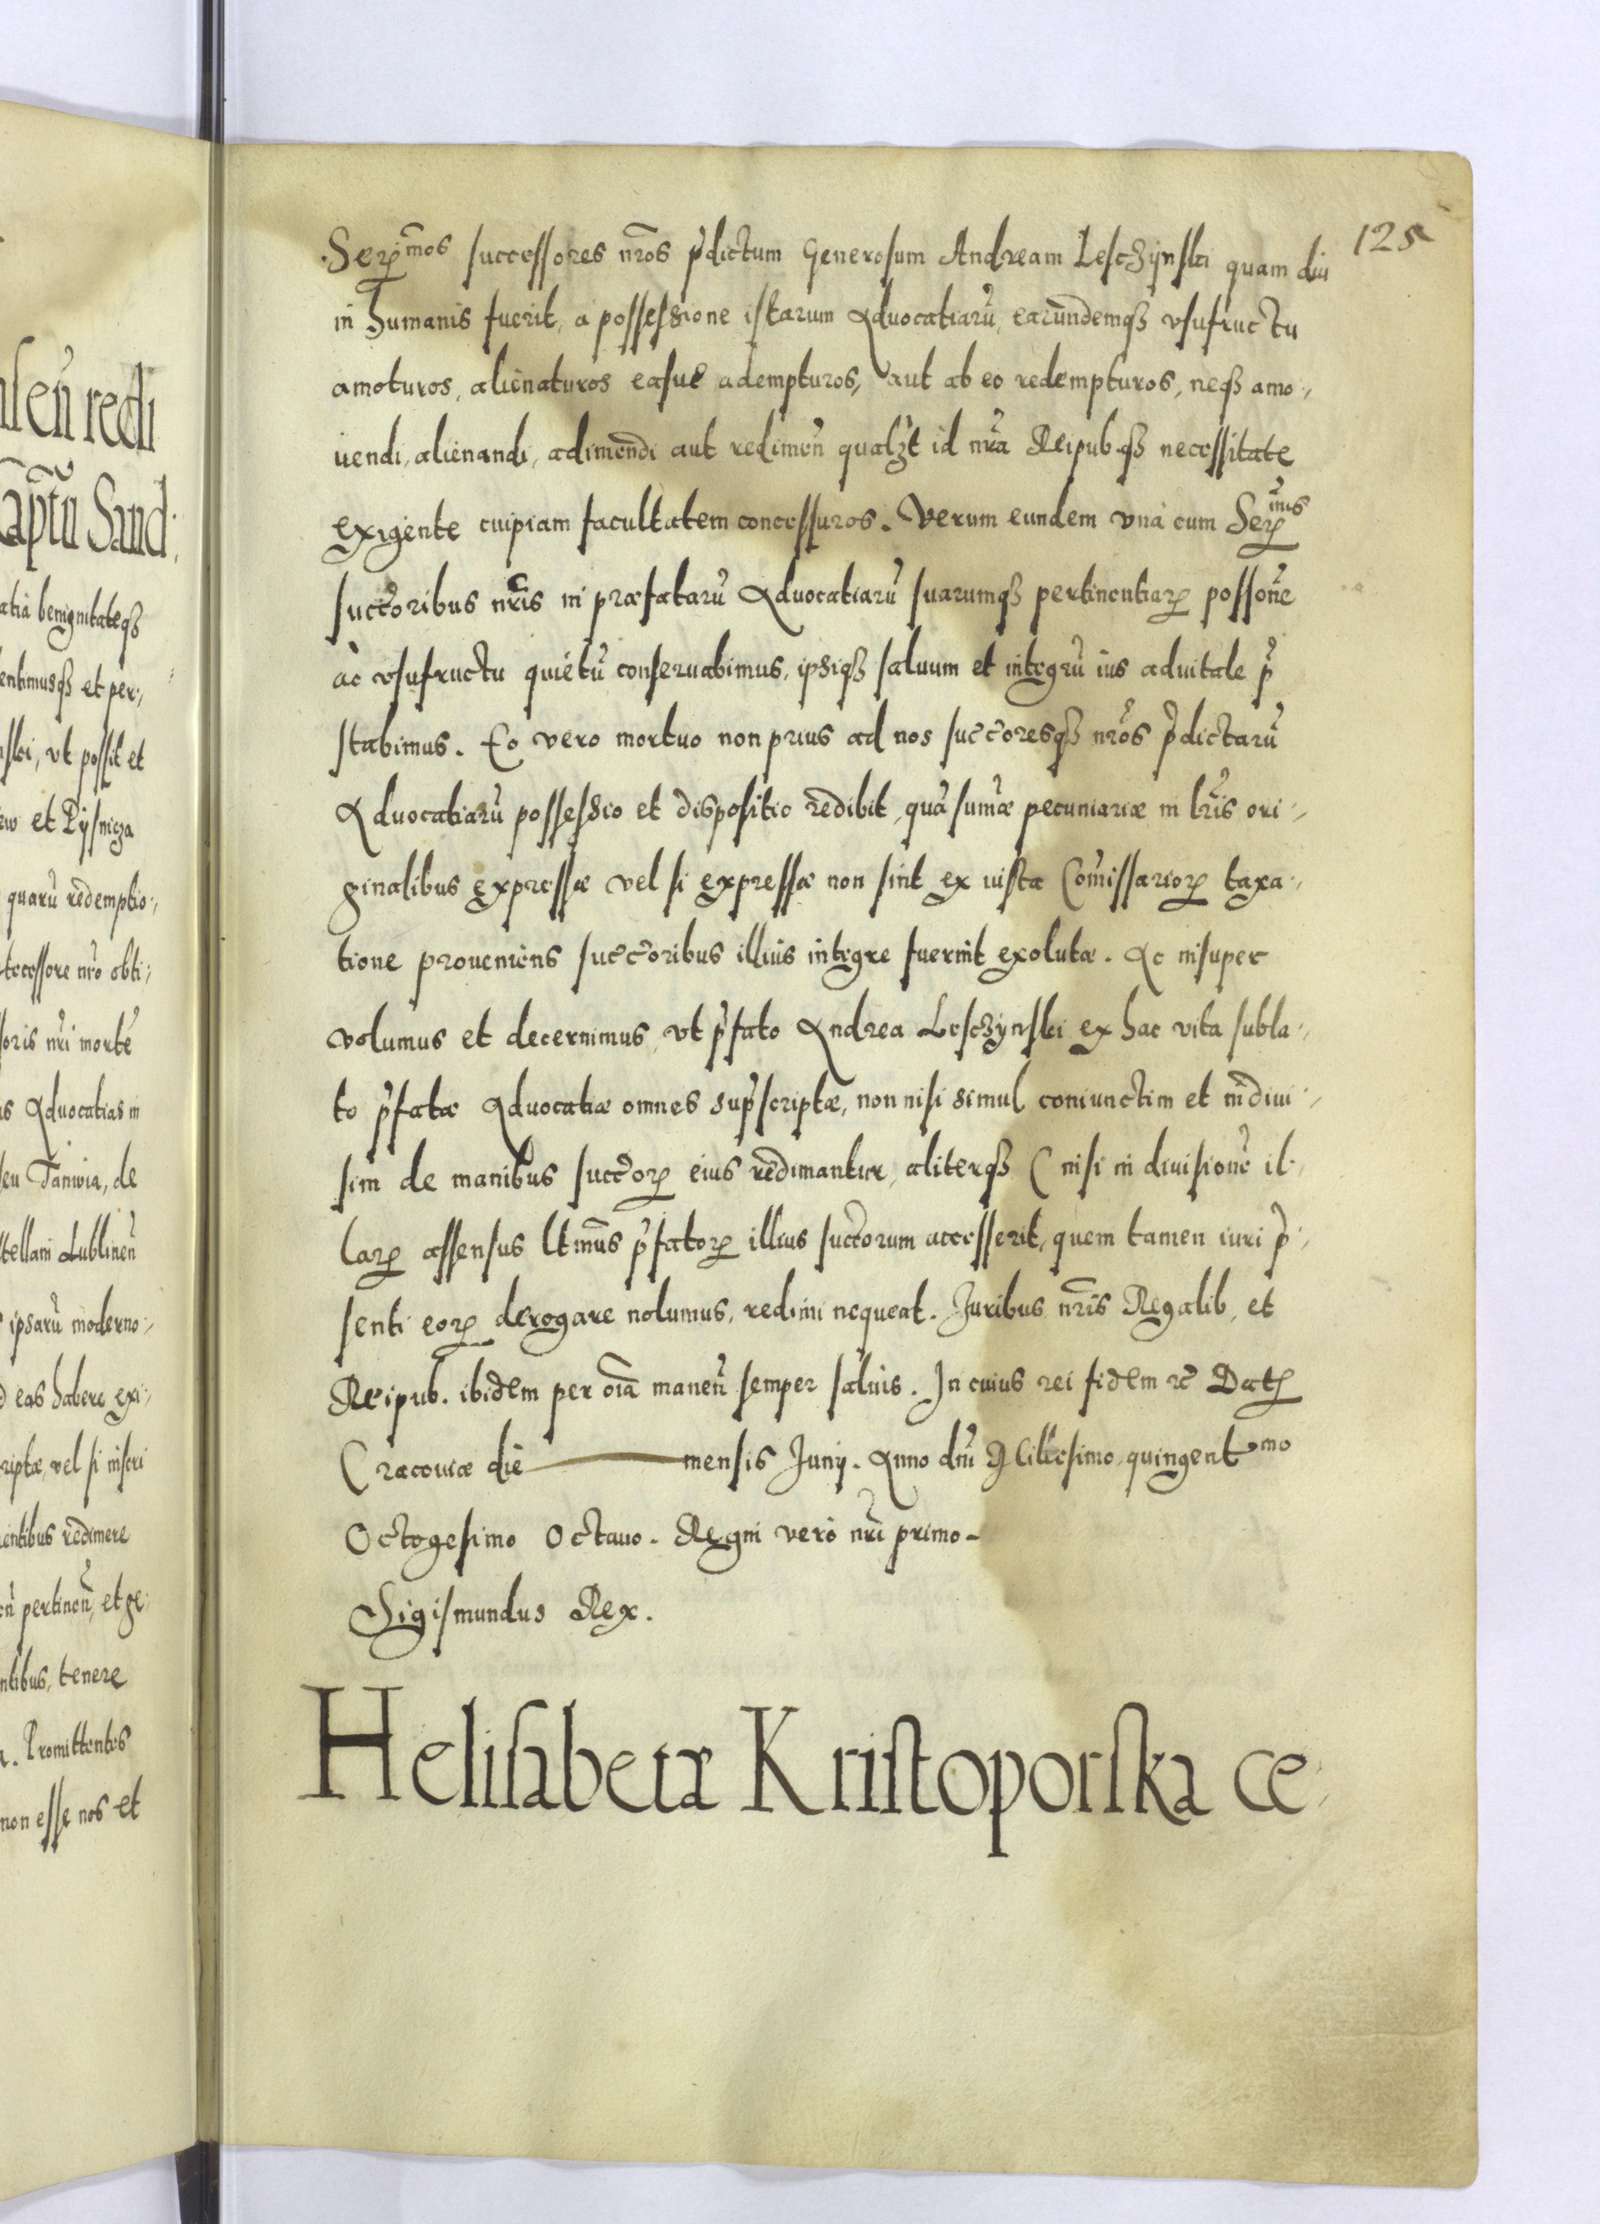 nseū redi
Captū Sand:
atia benignitateqȝ
entimusqȝ et per:,
nski, vt possit et
ew et Pÿsnicza
quarū redemptio:,
tecessore nr̄o obti:,
soris nr̄i mortē
us Aduocatias in
seu Tanwia, de
stellani Lublineñ
ipsarū moderno:,
d eas habere exi:,
riptæ, vel si inscri
entibus redimere
pertineñ, et ge:
ntibus, tenere
a. Promittentes
non esse nos et
125
Serꝫmos successores nr̄os p̄dictum Generosum Andream Leschÿnski quam diu
in humanis fuerit, a possessione istarum Aduocatiarū, earundemqȝ vsufructu
amoturos, alienaturos easue adempturos, aut ab eo redempturos, neqȝ amo:,
uendi, alienandi, adimendi aut redimeñ qualꝫt id nr̄a Reipubqȝ necessitate
exigente cuipiam facultatem concessuros. Verum eundem vnà cum Serꝫmis
succōribus nr̄is in præfatarū Aduocatiarū suarumqȝ pertinentiarꝫ possōne
ac vsufructu quiētū conseruabimus, ipsiqȝ saluum et integrū ius aduitale p̄
stabimus. Eo vero mortuo non prius ad nos succōresqȝ nr̄os p̄dictarū
Aduocatiarū possessio et dispositio redibit, quā sum̄æ pecuniariæ in lr̄is ori:,
ginalibus expressæ vel si expressæ non sint ex iusta Com̄issariorꝫ taxa:,
tione proueniens succōribus illius integre fuerint exolutæ. Ac insuper
volumus et decernimus, vt p̄fato Andrea Leschÿnski ex hac vita subla:,
to p̄fatæ Aduocatiæ omnes sup̄scriptæ, non nisi simul coniunctim et indiui:,
sim de manibus succōrꝫ eius redimantur, aliterqȝ (nisi in diuisionē il:
larꝫ assensus ltm̄us p̄fatorꝫ illius succōrum accesserit, quem tamen iuri p̄:
senti eorꝫ derogare nolumus, redimi nequeat. Juribus nr̄is Regalib, et
Reipub. ibidem per oīa maneñ semper saluis. In cuius rei fidem rē Datꝫ
Cracouiæ die ——— mensis Junÿ. Anno dn̄i Millesimo quingentmo
Octogesimo Octauo. Regni vero nr̄i primo-
Sigismundus Rex.
Helisabetæ Kristoporska ce: